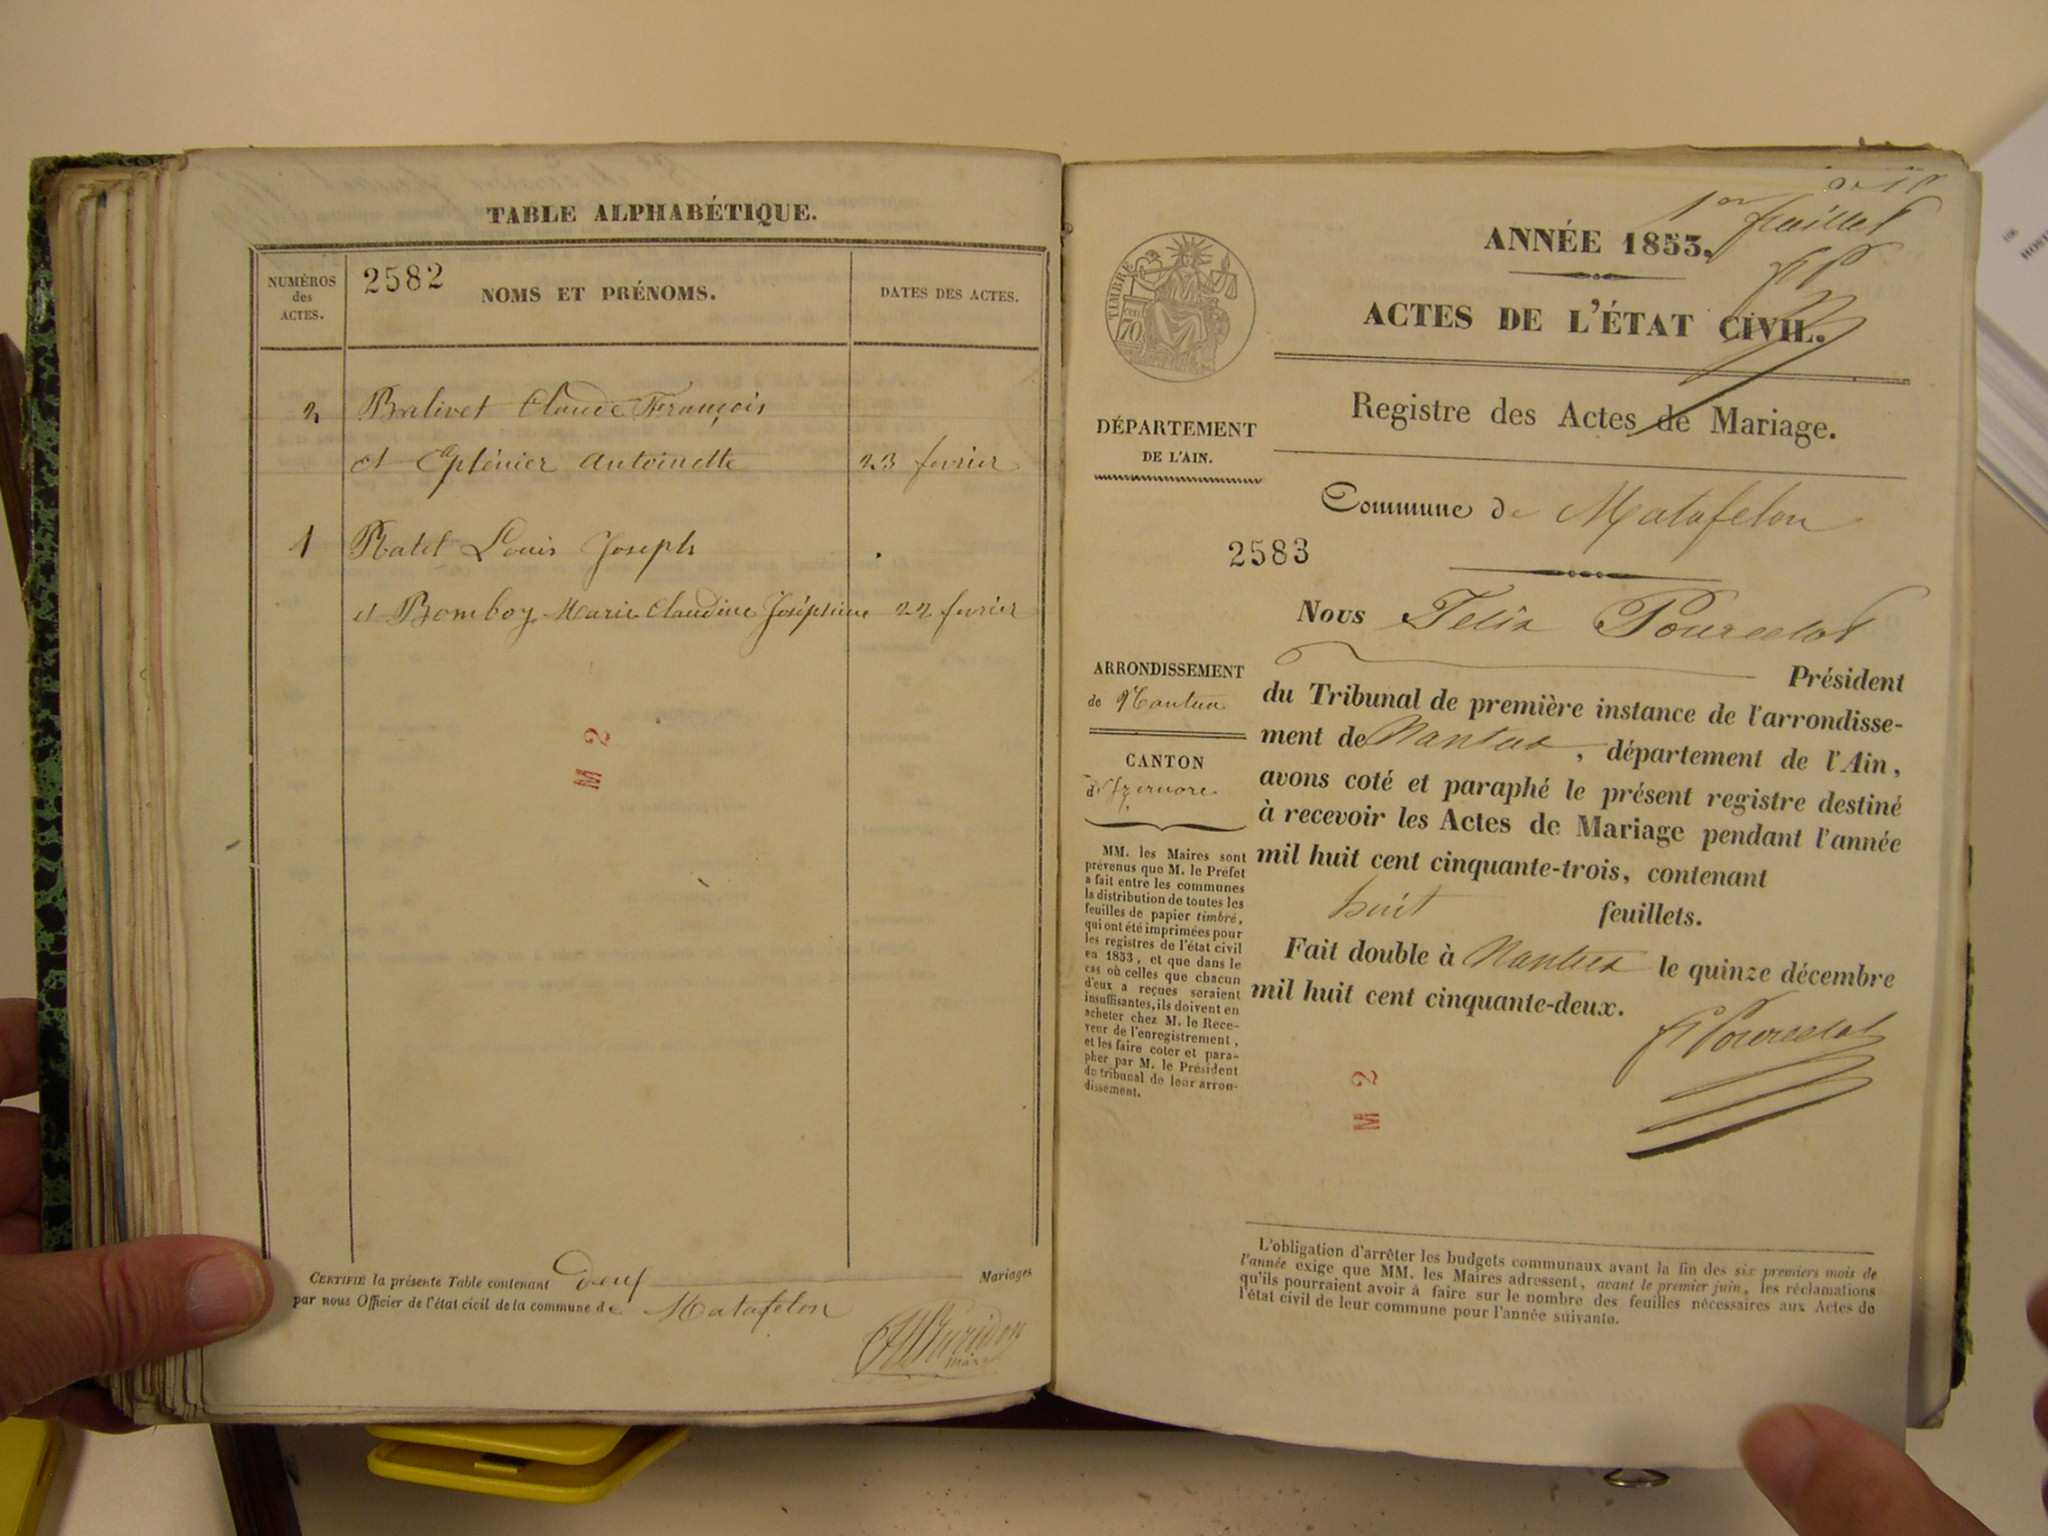 TABLE ALPHABÉTIQUE.
NUMÉROS
des
ACTES.
2582
NOMS ET PRÉNOMS.
DATES DES ACTES.
2 Balivet Claude François
et Antoinette 23 fevrier
1 Ratel Louis Joseph
et Bomboy Marie Claudine Joséphine 22 fevrier
M 2
CERTIFIÉ la présente Table contenant deux Mariages
par nous Officier de l'état civil de la commune de Matafelon
Maire
1er feuillet
ANNÉE 1853.
ACTES DE L'ÉTAT CIVIL.
TIMBRE
70
Registre des Actes de Mariage.
DÉPARTEMENT
DE L'AIN.
Commune de Matafelon
2583
Nous Félix Pourcelot
Président
du Tribunal de première instance de l'arrondisse-
ment de Nantua, département de l'Ain,
avons coté et paraphé le présent registre destiné
à recevoir les Actes de Mariage pendant l'année
mil huit cent cinquante-trois, contenant
huit feuillets.
Fait double à Nantua le quinze décembre
mil huit cent cinquante-deux.
F Pourcelot
M 2
ARRONDISSEMENT
de Nantua
CANTON
d'Izernore
MM. les Maires sont
prévenus que M. le Préfet
a fait entre les communes
la distribution de toutes les
feuilles de papier timbré,
qui ont été imprimées pour
les registres de l'état civil
en 1853, et que dans le
cas où celles que chacun
d'eux a reçues seraient
insuffisantes, ils doivent en
acheter chez M. le Rece-
veur de l'enregistrement,
et les faire coter et para-
pher par M. le Président
du tribunal de leur arron-
dissement.
L'obligation d'arrêter les budgets communaux avant la fin des six premiers mois de
l'année exige que MM. les Maires adressent, avant le premier juin, les réclamations
qu'ils pourraient avoir à faire sur le nombre des feuilles nécessaires aux Actes de
l'état civil de leur commune pour l'année suivante.